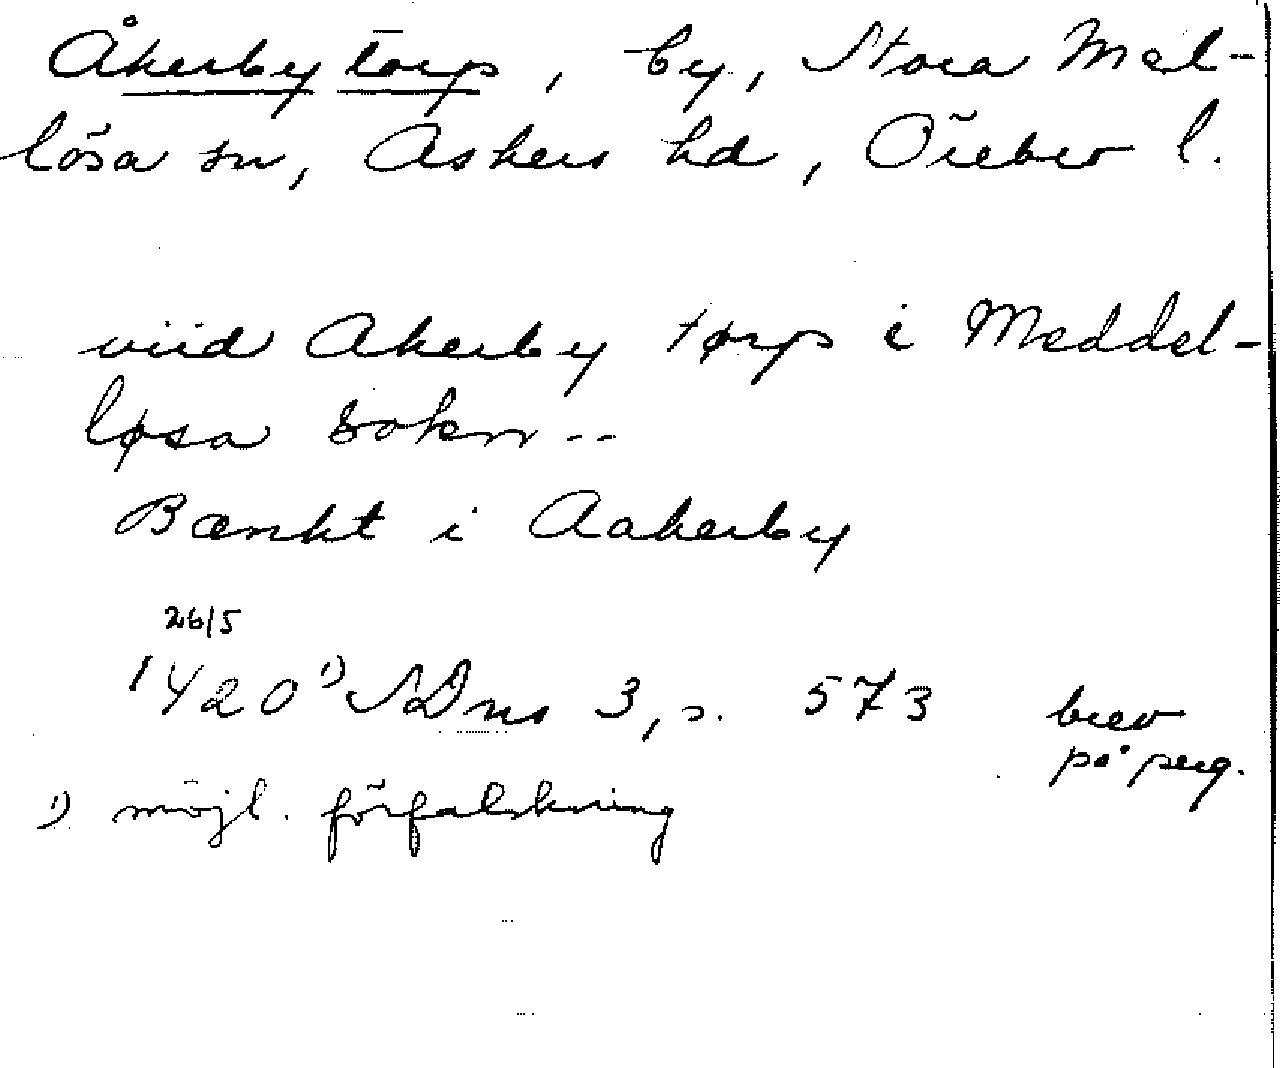 Åkerby torp, by, Stora Mel-
lösa sn, Askers hd, Örebro l.
viid Akerby tørp i Meddel-
løsa sokn--
Bænkt i Aakerby
26/5
1420 1) SDns 3, s. 573 brev
på perg.
1) möjl. förfalskning